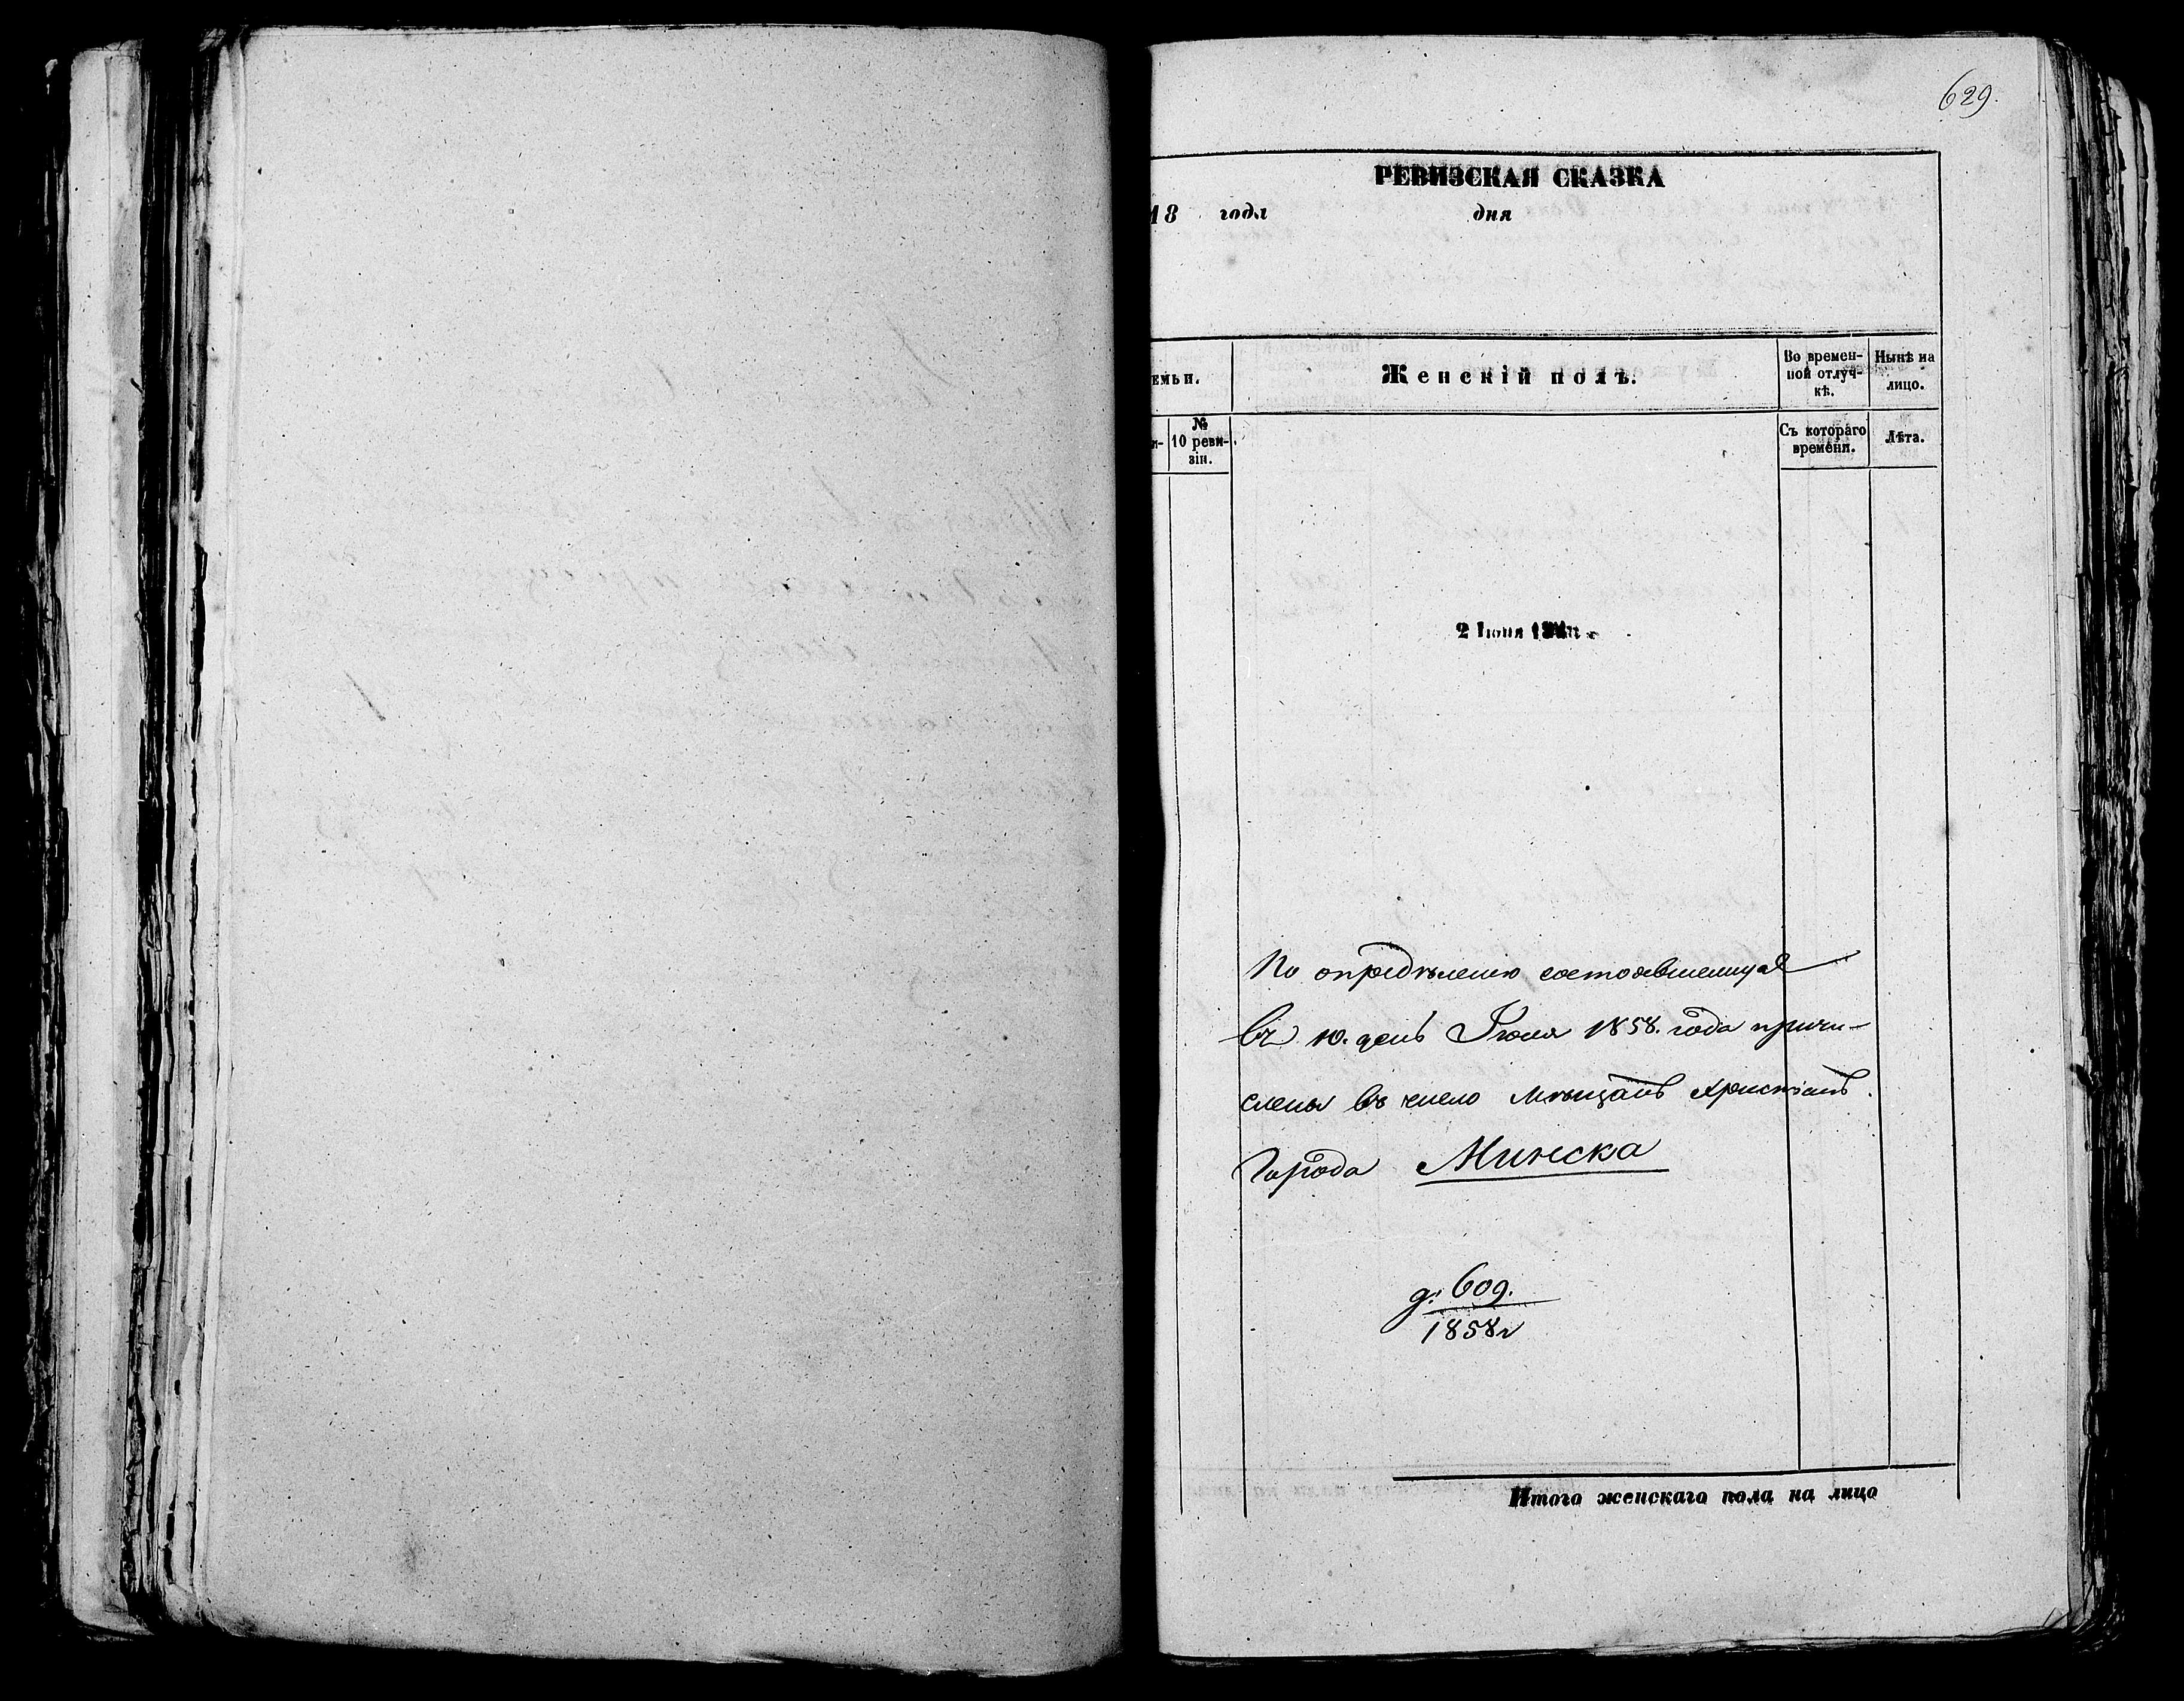 629.
РЕВИЗСКАЯ СКАЗКА
18 года дня
ЕМЬИ.
Женскій полъ.
Во времен-
ной отлуч-
кѣ.
Нынѣ на
лицо.
и-
№
10 реви-
зіи.
Съ котораго
времени.
Лѣта.
2 Іюня
По опредѣленію состоявшемуся
въ 10. день Іюля 1858. года причи-
слены въ число Мѣщанъ Христіанъ.
Города Минска
д. 609.
1858 г
Итого женскаго пола на лицо